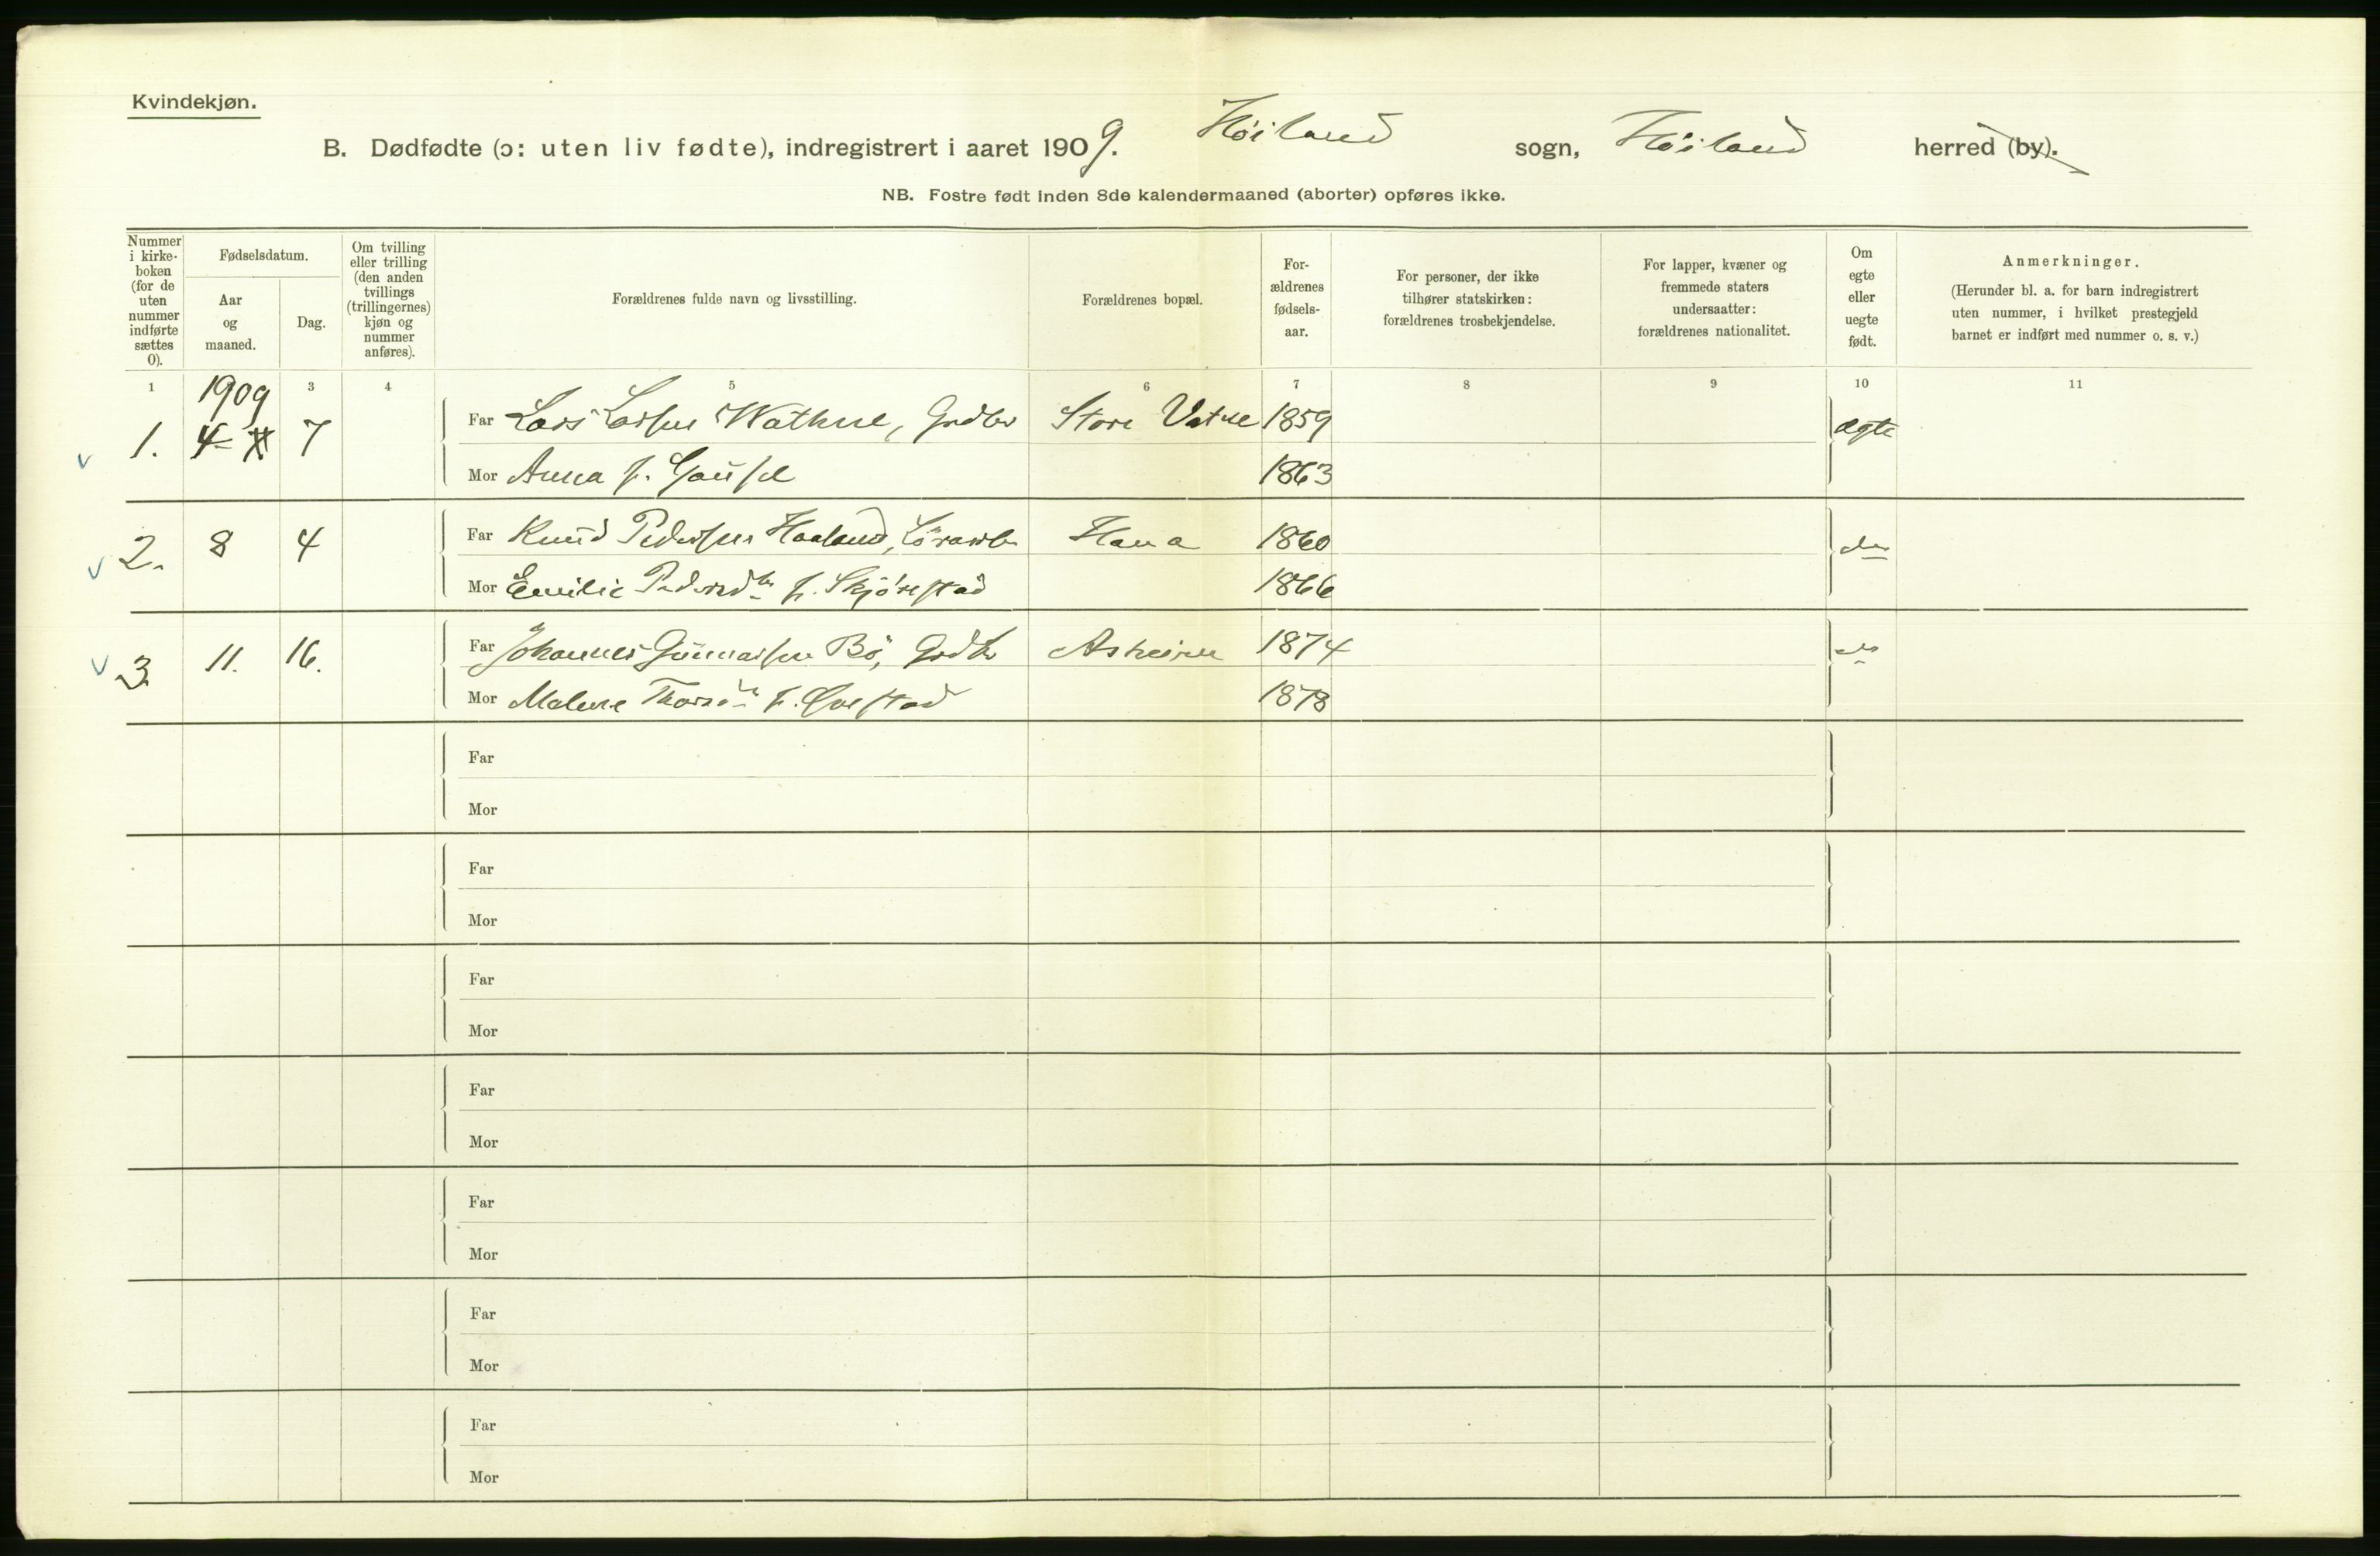 Kvindekjøn.
B. Dødfødte (ɔ: uten liv fødte), indregistrert i aaret 1909. Höiland sogn, Höiland herred (by).
NB. Fostre født inden 8de kalendermaaned (aborter) opføres ikke.
Nummer i kirke-boken (for de uten nummer indførte sættes 0).
Fødselsdatum.
Aar og maaned.
Dag.
Om tvilling eller trilling (den anden tvillings (trillingernes) kjøn og nummer anføres).
Forældrenes fulde navn og livsstilling.
Forældrenes bopæl.
For-ældrenes fødsels-aar.
For personer, der ikke tilhører statskirken: forældrenes trosbekjendelse.
For lapper, kvæner og fremmede staters undersaatter: forældrenes nationalitet.
Om egte eller uegte født.
Anmerkninger.
(Herunder bl. a. for barn indregistrert uten nummer, i hvilket prestegjeld barnet er indført med nummer o. s. v.)
1 3 4 5 6 7 8 9 10 11
1909
1. 4 7 Far Lars Larsen Wathne, Grdbr Store Vatne 1859 ægte
Mor Anna f. Gausel 1863
2. 8 4 Far Knud Pedersen Haaland, Hana 1860 do
Mor Emilie Pedersdtr f. Skjörestad 1866
3. 11. 16. Far Johannes Gunnarsen Bö, Grdbr Asheim 1874 do
Mor Malene f. 1878
Far
Mor
Far
Mor
Far
Mor
Far
Mor
Far
Mor
Far
Mor
Far
Mor